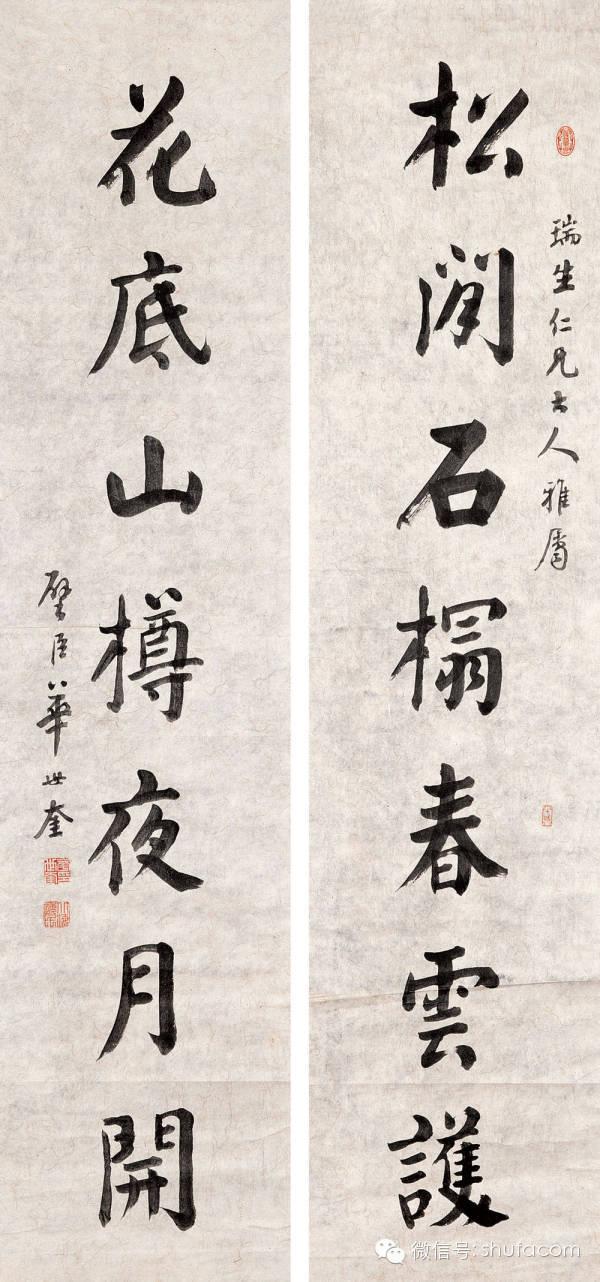 瑞生仁兄大人雅屬
松閒石榻春雲護
花底山樽夜月開
璧臣華世奎
微信号:shufacom